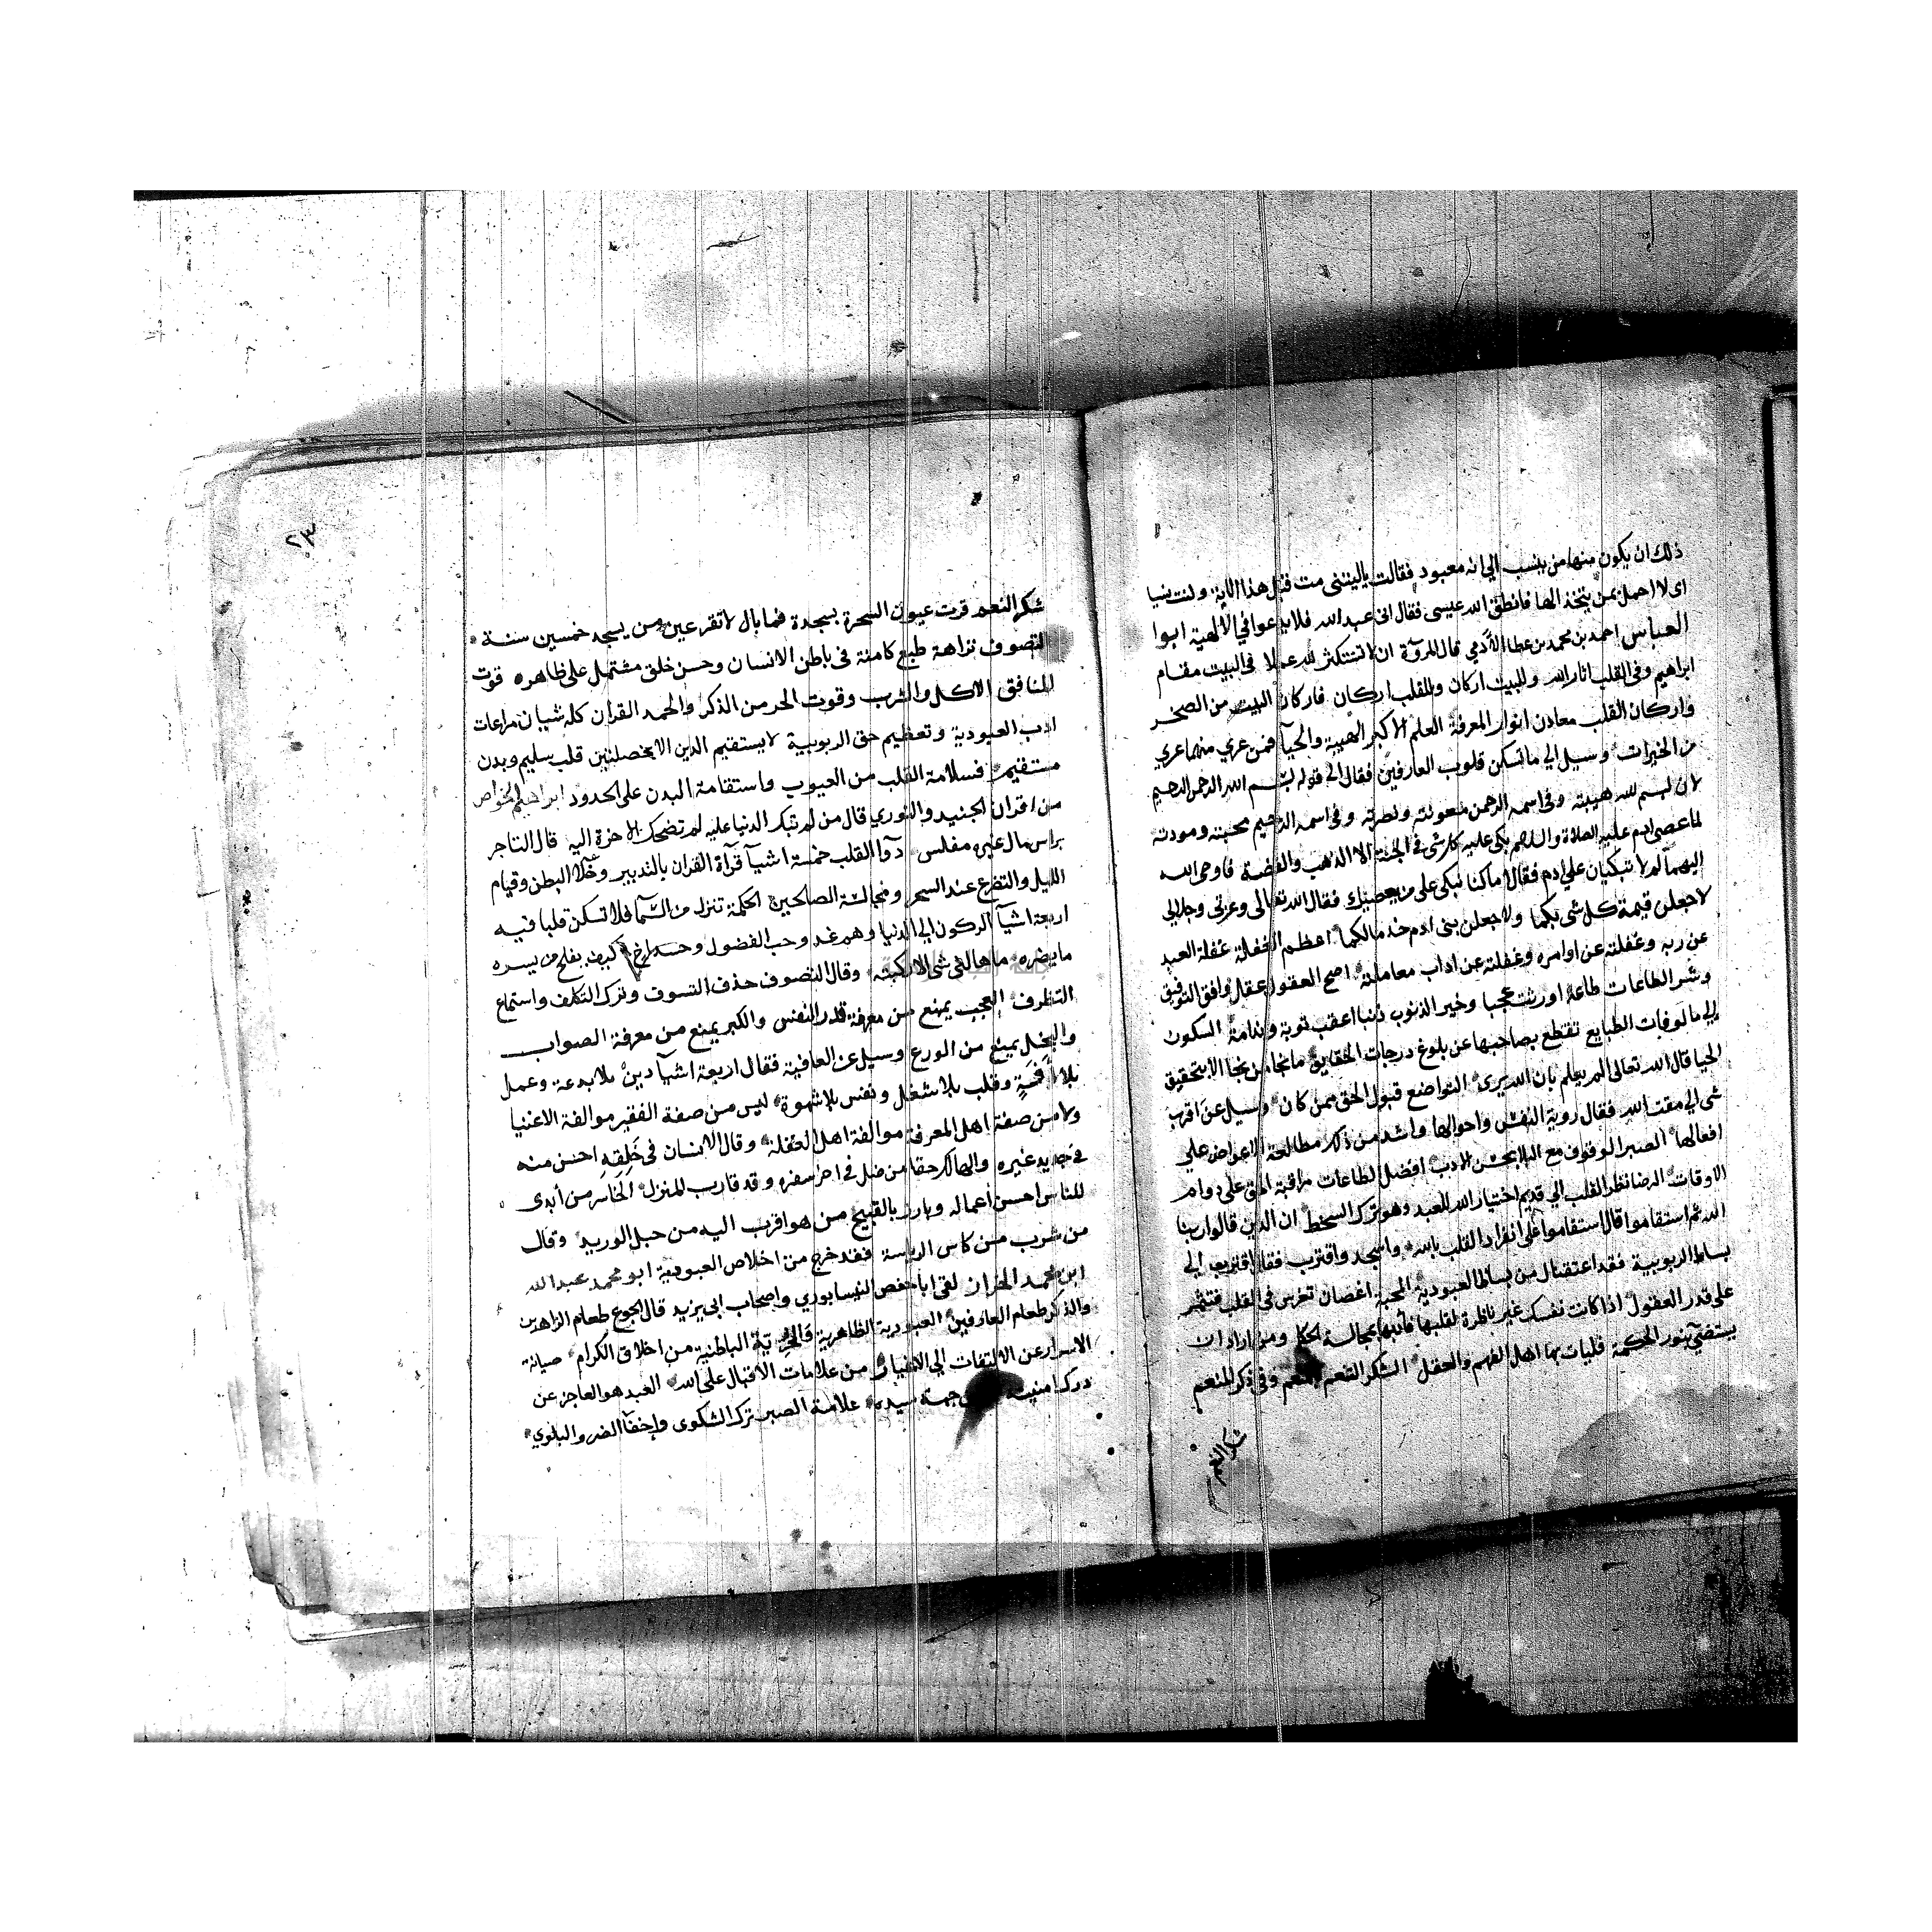 ذلك ان يكون منها من ينسب الي انه معبود فقالت ياليتنى مت قبل هذا الاية وكنت نسيا
اى لا احمل بمن يتخذ الها فانطق الله عيسى فقال انى عبد الله فلا يدعوا في الالهية ابوا
العباس احمد بن محمد بن عطا الادمي قال المروّة ان لا تستكثر لله عملا في البيت مقام
ابراهيم وفى القلب اثار الله وللبيت اركان وللقلب اركان فاركان البيت من الصخر
واركان القلب معادن انوار المعرفة العلم الاكبر الهيبة والحيا فمن عري منهما عري
من الخيرات وسيل الي ماتسكن قلوب العارفين فقال الى قوله بسم الله الرحمن الرحيم
لان بسم لله هيبته وفى اسمه الرحمن معونته ونصرته وفى اسمه الرحيم محبته ومودته
لما عصى ادم عليه الصلاة والسلام بكى عليه كل شى في الجنة الا الذهب والفضة فاوحى الله
اليهما لم لا تبكيان على ادم فقالا ما كنا نبكى على من يعصيك فقال الله تعالى وعزتى وجلالي
لاجعلن قيمة كل شى بكما ولاجعلن بنى ادم خدما لكما اعظم الغفلة غفلة العبد
عن ربه وغفلته عن اوامره وغفلته عن اداب معاملته اصح العقول عقل وافق التوفيق
وشر الطاعات طاعة اورثت عجبا وخير الذنوب ذنبا اعقب توبة وندامة السكون
إلي مالوفات الطبايع تقطع بصاحبها عن بلوغ درجات الحقايق ما نجا من نجا الا بتحقيق
الحيا قال الله تعالى الم يعلم بان الله يرى التواضع قبول الحق ممن كان وسيل عن اقرب
شى الي مقت الله فقال روية النفس واحوالها واشد من ذلك مطالعة الاعواض على
افعالها الصبر الوقوف مع البلا بحسن الادب افضل الطاعات مراقبة الحق على دوام
الاوقات الرضا نظر القلب الي قديم اختيار الله للعبد وهو ترك السخط ان الذين قالوا ربنا
الله ثم استقاموا قال استقاموا على انفراد القلب بالله واسجد واقترب فقال اقترب الي
بساط الربوبية فقد اعتقناك من بساط العبودية المحبة اغصان تغرس فى القلب فتثمر
على قدر العقول اذا كانت نفسك غير ناظرة لقلبها فأدبها بمجالسة الحكما ومن اراد ان
يستضئ بنور الحكمة فليات بها اهل الفهم والعقل الشكر التنعم وفى ذكر المنعم
شكر النعم
٢٣
شكر النعم قرت عيون السحرة بسجدة فما بال لا تقر عين من يسجد خمسين سنة
التصوف نزاهة طبع كامنة فى باطن الانسان وحسن خلق مشتمل على ظاهره قوت
المنافق الاكل والشرب وقوت الحر من الذكر والحمد القران كله شيان مراعات
ادب العبودية وتعظيم حق الربوبية لا يستقيم الدين الا بخصلتين قلب سليم وبدن
مستقيم فسلامة القلب من العيوب واستقامة البدن على الحدود ابراهيم الخواص
من اقران الجنيد والنوري قال من لم تبك الدنيا عليه لم تضحك الاخرة اليه قال التاجر
براس مال غيره مفلس دوآ القلب خمسة اشيآ قرآة القران بالتدبير وخلآ البطن وقيام
الليل والتضرع عند السحر ومجالسة الصالحين الحكمة تنزل من السّمآ فلا تسكن قلبا فيه
اربعة اشيآ الركون الي الدنيا وهم غد وحب الفضول وحسد اخ كيف يفلح من يسره
مايضره ما هالنى شى الا ركبته وقال التصوف حذف التسوف وترك التكلف واستماع
التظرف العجب يمنع من معرفة قدر النفس والكبر يمنع من معرفة الصواب
والبخل يمنع من الورع وسيل عن العافية فقال اربعة اشيآ دين بلا بدعة وعمل
بلا افةٍ وقلب بلا شغل ونفس بلا شهوة ليس من صفة الفقير موالفة الاغنيا
ولا من صفة اهل المعرفة موالفة اهل الغفلة وقال الانسان فى خَلِقِهِ احسن منه
في جديد غيره والهالك حقا من ضل في اخر سفره وقد قارب المنزل الخاسر من أبدى
للناس احسن اعماله وبارز بالقبيح من هو اقرب اليه من حبل الوريد وقال
من شرب من كاس الرياسة فقد خرج من اخلاص العبودية ابو محمد عبد الله
ابن محمد الخراز لقى اباحفص النيسابوري واصحاب ابي يزيد قال الجوع طعام الزاهدين
والذكر طعام العارفين العبودية الظاهرية الباطنية من اخلاق الكرام صيانة
الاسرار عن الالتفات الي الاغيار من علامات الاقبال على الله العبد هو العاجز عن
درك امنيته جهة سيده علامة الصبر ترك الشكوى واخفآ الضر والبلوي